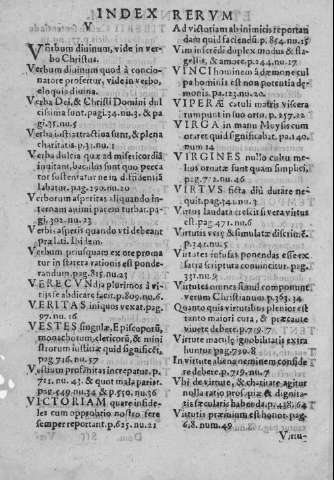 INDEX RERVM
V
Verbum diuinum, vide in ver-
bo Christus.
Verbum diuinum quod à concio-
natore profertur, vide in verbo,
eloquia diuina.
Verba Dei, & Christi Domini dul
cissima sunt. pagi. 24. nu. 3. & pa
gi. 25. nu. 4
Verba iusti attractiua sunt, & plena
charitatis. p. 31. nu. 1
Verba dulcia quæ ad misericordiã
inuitant, baculus sunt quo pecca
tor sustentatur ne in
labatur. pag. 290. nu. 20
Verborum asperitas aliquando in-
ternam animi pacem turbat. pa-
gi, 302. nu. 23
Verbis asperis quando vti debeant
prælati. Ibidem.
Verbum priusquam ex ore proma
tur in statera rationis est ponde-
randum. pag. 815. nu. 25
VERECVNdia plurimos à vi-
tijs se abdicare facit. p. 809. nu. 6.
VERITAS iniquos vexat. pag.
97. nu. 16
VESTES singulæ, Episcoporũ,
monachorum, clericorũ, & mini
strorum iustitiæ quid significẽt,
pag 716. nu. 57
Vestium profanitas increpatur. p.
721. nu. 43. & quot mala pariat.
pag. 549. nu. 34 & p. 550. nu. 36
VICTORIAM quare infide-
les cum opprobrio nostro fere
semper reportant. p. 625. nu. 21
Ad victoriam ab inimicis reportan
dam quid faciendũ. p. 854. nu. 15
Vim inferẽdi duplex modus & fla
gellis, & amore. p. 244. nu. 17
VINCI hominem à dæmone cul
pa hominis est non potentia dæ-
monis. pa. 123. nu. 20.
VIPERÆ catuli matris viscera
rumpunt in suo ortu. p. 257. 22
VIRGA in manu Moysis cum
esset quid significabat. pa. 140.
num 14
VIRGINES nullo cultu me-
lius ornatæ sunt quam simplici.
pag. 772. nu. 46
VIRTVS ficta diu durare ne-
quit. pag. 142. nu. 3
Virtus laudata crescit si vera virtus
est. pag 471. nu. 6
Virtutis veræ & simulatæ discrimẽ.
p. 341. nu. 5
Virtutes infusas ponendas esse ex
sacra scriptura conuincitur. pag.
331. nu. 9
Virtutes omnes simul componunt
verum Christianum p. 363. 34
Quanto quis virtutibus plenior est
tanto maiori cura, & præcaute
viuere debet. p. 719. 7
Virtute maculę ignobilitatis extra
huntur. pag. 739. 8
In virtute aliena neminem confide
re debere. p. 719. nu, 7
Vbi de virtute, & charitate agitur
nulla ratio prosapiæ & dignita-
tis sæcularis habenda p. 438. 64
Virtutis præmium est honor. pag.
68. num. 49
V. nu-